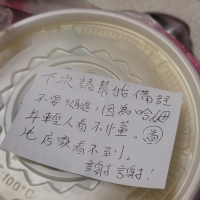 下次請幫 備註
不要火腿,因為哈姆
年輕人看不懂。
地店家看不到。
謝謝!
100°C